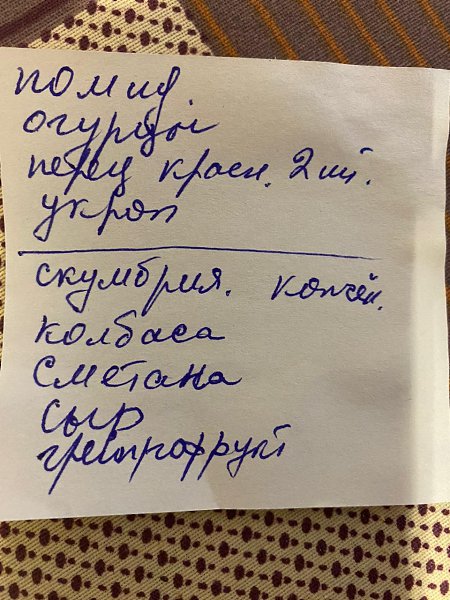 помид
огурцы
перец красн. 2 шт.
укроп
скумбрия. копчён.
колбаса
сметана
сыр
грейпфрукт